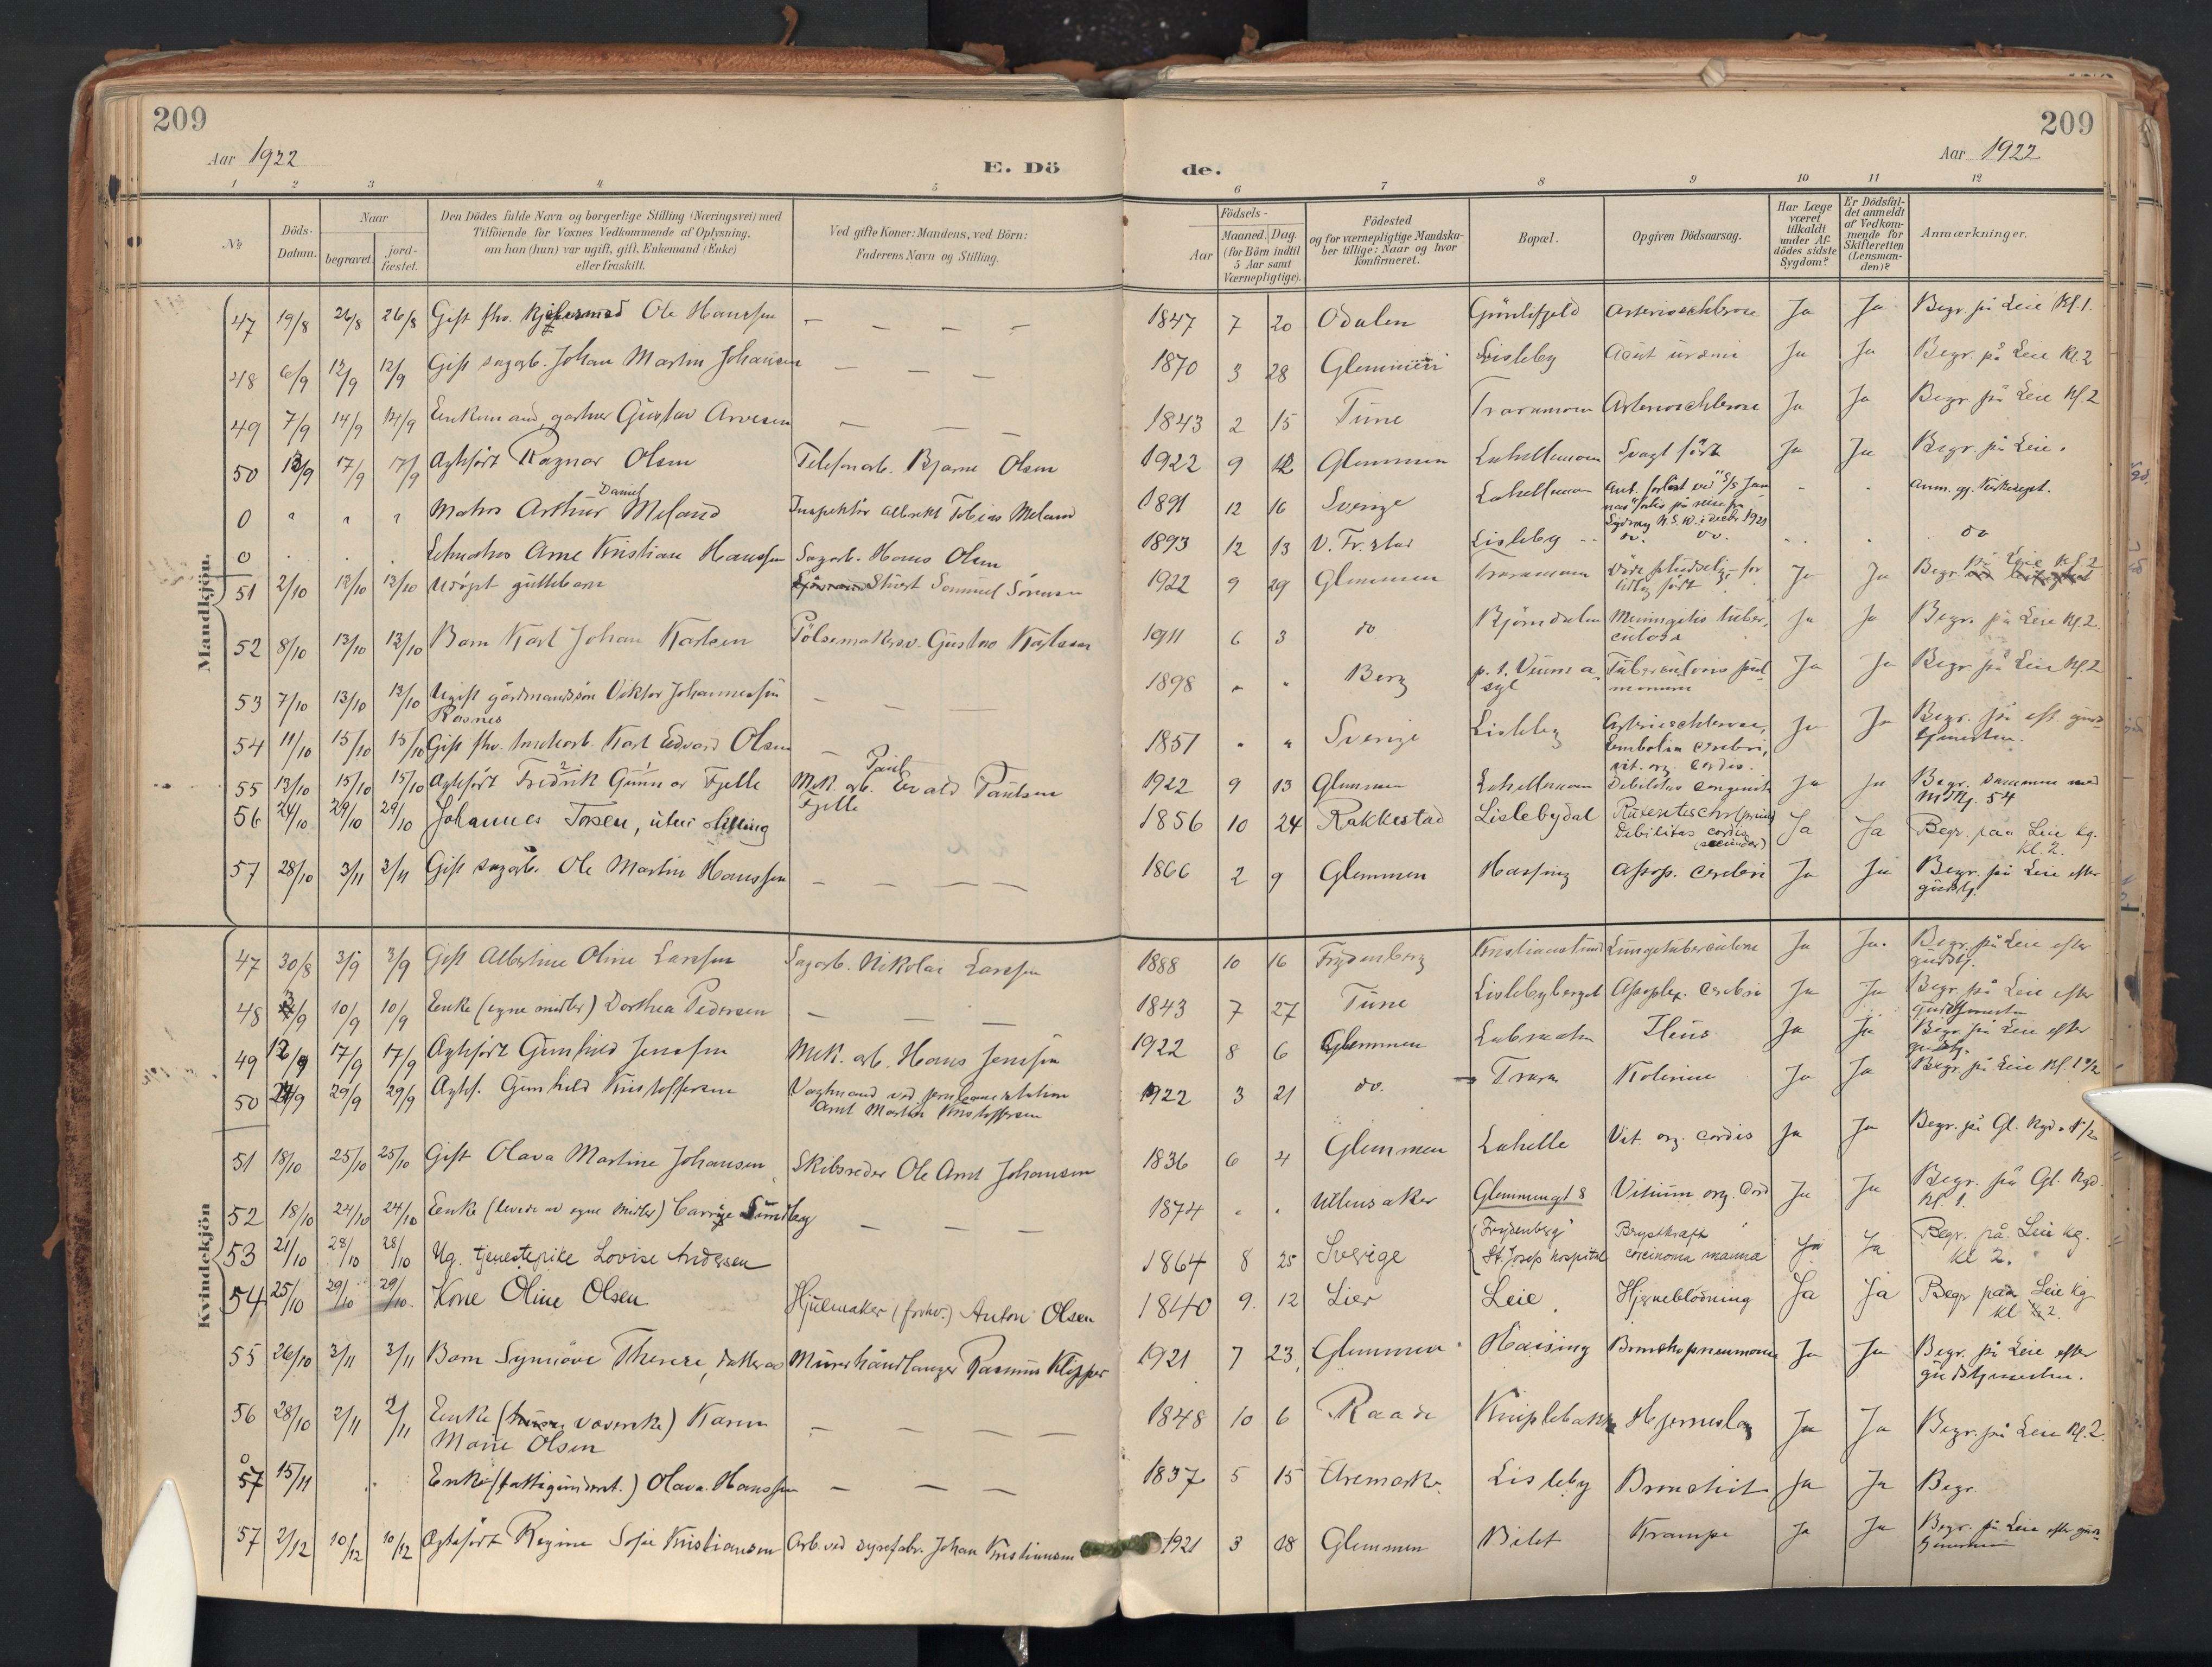 209
209
Aar 1922
E. Dö
de.
Aar 1922
1 2 3 4 5 6 7 8 9 10 11 12
No
Döds-Datum.
Naar
begravet.
jord-fæstet.
Den Dödes fulde Navn og borgerlige Stilling (Næringsvei) med
Tilföiende for Voxnes Vedkommende af Oplysning,
om han (hun) var ugift, gift, Enkemand (Enke)
eller fraskilt.
Ved gifte Koner: Mandens, ved Börn:
Faderens Navn og Stilling.
Födsels-
Aar
Maaned. Dag.
(for Börn indtil
5 Aar samt
Værnepligtige).
Födested
og for værnepligtige Mandska-
ber tillige: Naar og hvor
konfirmeret.
Bopæl.
Opgiven Dödsaarsag.
Har Læge
været
tilkaldt
under Af-
dödes sidste
Sygdom?
Er Dödsfal-
det anmeldt
af Vedkom-
mende for
Skifteretten
(Lensman-
den)?
Anmærkninger.
Mandkjön.
47 19/8 26/8 26/8 Gift fhv. Ole Hanssen — — — — 1847 7 20 Odalen Grönlifjeld Arteriosclerose Ja Ja Begr. på Leie Kl. 1.
48 6/9 12/9 12/9 Gift sagarb. Johan Martin Johansen — — — 1870 3 28 Glemmen Lisleby Acut urämi Ja Ja Begr. på Leie Kl. 2
49 7/9 14/9 14/9 Enkemand, gartner Gustav Arvesen — — — 1843 2 15 Tune Traramoen Arteriosclerose Ja Ja Begr. på Leie Kl. 2
50 13/9 17/9 17/9 Ægtefött Ragnar Olsen Telefonarb. Bjarne Olsen 1922 9 12 Glemmen Lahellemoen Svagt född Ja Ja Begr. på Leie.
0 " " " Matros Arthur Daniel Meland Inspektör Albrekt Tobias Meland 1891 12 16 Sverige Lahellemoen Ant. forlist ved S/S
Sydney N.S.W. i decbr 1921 - - Anm. gj. Kirkedept.
0 . . . Letmatros Arne Kristian Hanssen Sagarb. Hans Olsen 1893 12 13 V. Fr.stad Lisleby do. do. - . do
51 2/10 12/10 12/10 Udöpt guttebarn Samuel Sörensen 1922 9 29 Glemmen Traramoen Döde pludselig - for
tidlig född? Ja Ja Begr. på Leie Kl. 2
52 8/10 13/10 13/10 Barn Karl Johan Karlsen Pölsemakersv. Gustav Karlsen 1911 6 3 do Bjørndalen Meningitis tuber-
culosa Ja Ja Begr. på Leie Kl. 2.
53 7/10 13/10 13/10 Ugift gårdmandssön Viktor Johannessen
Rosnes — — — 1898 " " Berg Tuberculosis pul-
monum Ja Ja Begr. på Leie Kl. 2
54 11/10 15/10 15/10 Gift fhv. Karl Edvard Olsen — 1851 " " Sverige Lisleby Arteriosclerose,
Embolia cerebri,
vit. org. cordis. Ja Ja Begr. på eft. guds-
tjenesten.
55 13/10 15/10 15/10 Ægtefött Fredrik Gunnar Fjelle Mek. arb. Evald Paul Paulsen
Fjelle 1922 9 13 Glemmen Lahellemoen Debilitas congenita Ja Ja Begr. sammen med
mdkj. 54
56 24/10 29/10 29/10 Johannes Torsen, uten stilling 1856 10 24 Rakkestad Lislebydal
Debilitas cordis
(secundær) Ja Ja Begr. paa Leie kg.
kl. 2.
57 28/10 3/11 3/11 Gift sagarb. Ole Martin Hanssen — — — — 1866 2 9 Glemmen Hassing Apop. cerebri Ja Ja Begr. på Leie efter
gudstj.
Kvindekjön
47 30/8 3/9 3/9 Gift Albertine Oline Larssen Sagarb. Nikolai Larssen 1888 10 16 Frydenberg Kristianslund Lungetuberculose Ja Ja. Begr. på Leie efter
gudstj.
48 3/9 10/9 10/9 Enke (egne midler) Dorthea Pedersen — — — 1843 7 27 Tune Lislebyberget Apoplex. cerebri Ja Ja Begr. på Leie efter
gudstjenesten
49 12/9 17/9 17/9 Ægtefött Gunhild Jenssen Mek. arb. Hans Jenssen 1922 8 6 Glemmen Labratn Ileus Ja Ja Begr. på Leie efter
gudstj.
50 24/9 29/9 29/9 Ægtef. Gunhild Kristoffersen Vagtmand ved jernbanestation
Arnt Martin Kristoffersen 1922 3 21 do. Trara Kolerine Ja Ja Begr. på Leie Kl. 1 1/2
51 18/10 25/10 25/10 Gift Olava Martine Johansen Skibsreder Ole Arnt Johansen 1836 6 4 Glemmen Lahelle Vit. org. cordis Ja Ja Begr. på Gl. Kgd.
52 18/10 24/10 24/10 Enke (levede av egne midler) — — — 1874 " " Ullensaker Glemmengt 8 Vitium org. cord Ja Ja Begr. på Gl. Kgd.
Kl. 1.
53 21/10 28/10 28/10 Ug. tjenestepike Lovise Andersen 1864 8 25 Sverige Frydenberg
St. Josefs hospital Brystkræft
carcinoma mamma Ja Ja Begr. på Leie kg.
kl 2.
54 25/10 29/10 29/10. Kone Oline Olsen Hjulmaker (forhv.) Anton Olsen 1840 9. 12 Lier Leie Hjerneblödning Ja Ja Begr paa Leie Kg
kl 2.
55 26/10 3/11 3/11 Barn Synnöve Therese, datter av Murerhåndlanger Rasmus Klipper 1921 7 23 Glemmen Hassing Bronchopneumoni Ja Ja Begr. på Leie efter
gudstjenesten.
56 28/10 2/11 2/11 Enke (væverske) Karen
Marie Olsen — — — — 1848 10 6 Raade Kniplebakk Hjerneslag Ja Ja Begr. på Leie Kl. 2.
0
57 15/11 Enke (fattigunderst.) Olava Hanssen — — — 1837 5 15 Aremark Lisleby Bronchit Ja Ja Begr.
57 2/12 10/12 10/12 Ægtefött Regine Sofie Kristiansen Arb. ved syrefabr. Johan Kristiansen 1921 3 08 Glemmen Bilet Krampe Ja Ja Begr. på Leie efter guds-
tjenesten